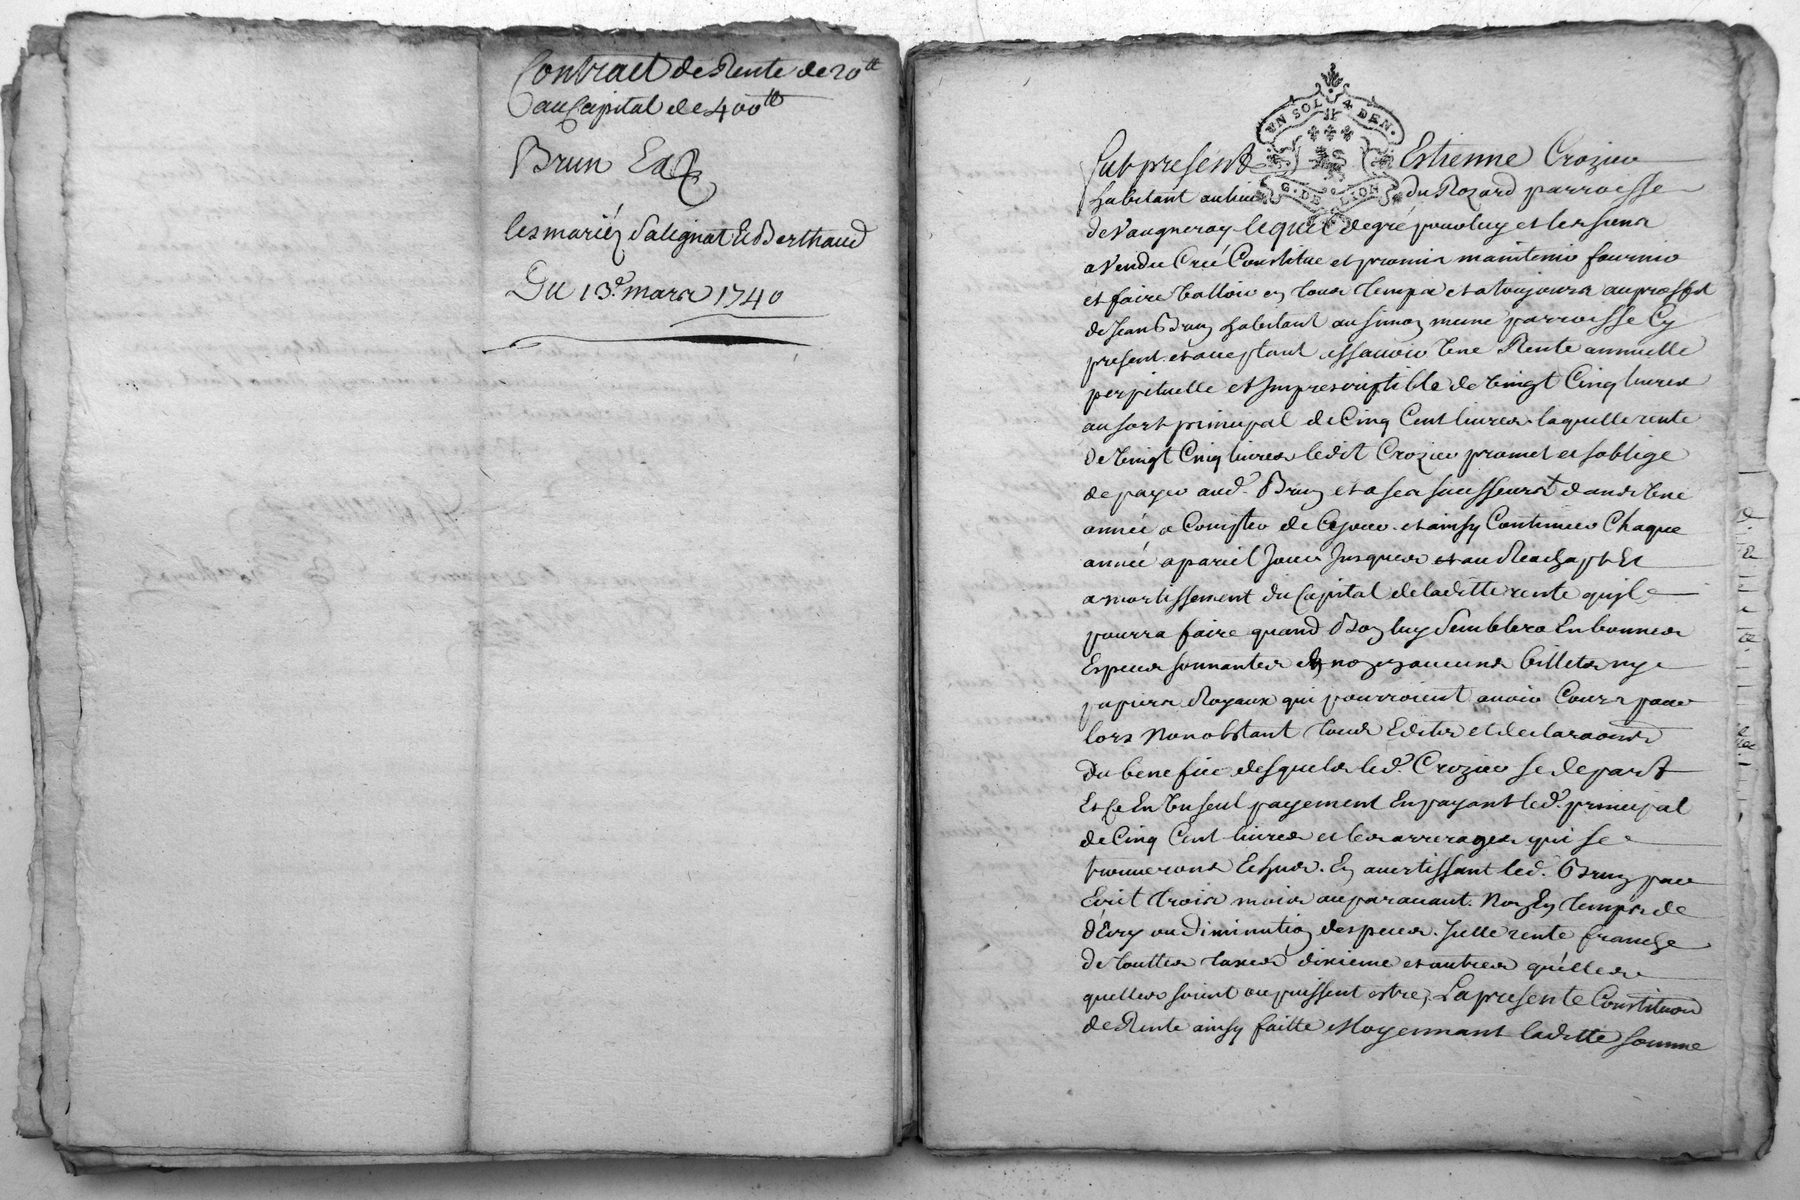 Contract de Rente de 20tt
au Capital de 400tt
Brun Et
les mariéz Salignat et Berthaud
Du 13e. mars 1740
UN SOL 4 DEN.
G. DE LION
fut present Estienne Crozier
habitant au lieu du Rozard parroisse
de Vaugneray lequel de gré pour luy et les siens
a Vendu Créé Constitué et promis maintenir fournir
et faire Valloir en tous temps et a toujours au proffit
de Jean Brun habitant au Simon meme parroisse Cy
present et acceptant assavoir Une Rente annuelle
perpetuelle et Imprescriptible de Vingt Cinq livres
au sort principal de Cinq Cent livres laquelle rente
de Vingt Cinq livres ledit Crozier promet et soblige
de payer aud. Brun et a ses successeurs dans Une
année a Compter de Cejour et ainsy Continuer Chaque
année a pareil Jour Jusques au Reachapt Et
amortissement du Capital de laditte rente quil
pourra faire quand Bon luy Semblera En bonnes
Especes sonnantes Et non en aucuns billets ny
papiers Royaux qui pourroient avoir Cours pour
lors Nonobstant tous Edits et declaraons
du benefice desquels led. Crozier se depart
Et Ce En Un seul payement En payant led. principal
de Cinq Cent livres et les arrerages qui se
trouveront Echus. En avertissant led. Brun par
Ecrit trois mois auparavant. Non En temps de
décry ou Diminution despeces. Jcelle rente franche
de touttes taxes dixieme et autres quelles
quelles soient ou puissent estre, La presente Constituon
de Rente ainsy faitte Moyennant laditte somme